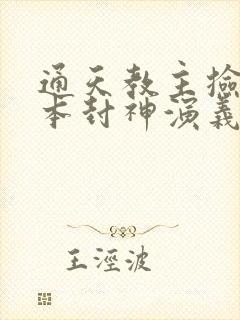 通天教主捡
本封神演義
王淫波